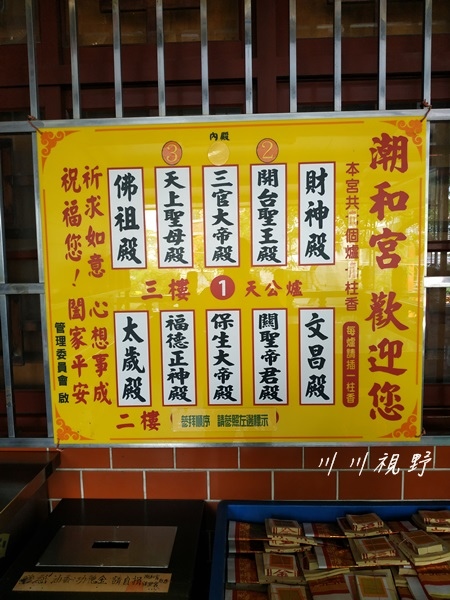 潮和宮 歡迎您
內殿
③
②
財神殿
開台聖王殿
三官大帝殿
天上聖母殿
佛祖殿
三樓
1
天公爐
文昌殿
關聖帝君殿
保生大帝殿
福德正神殿
太歲殿
二樓
每爐請插一柱香
祈求如意
祝福您！
心想事成
闔家平安
管理委員會 啟
川川視野